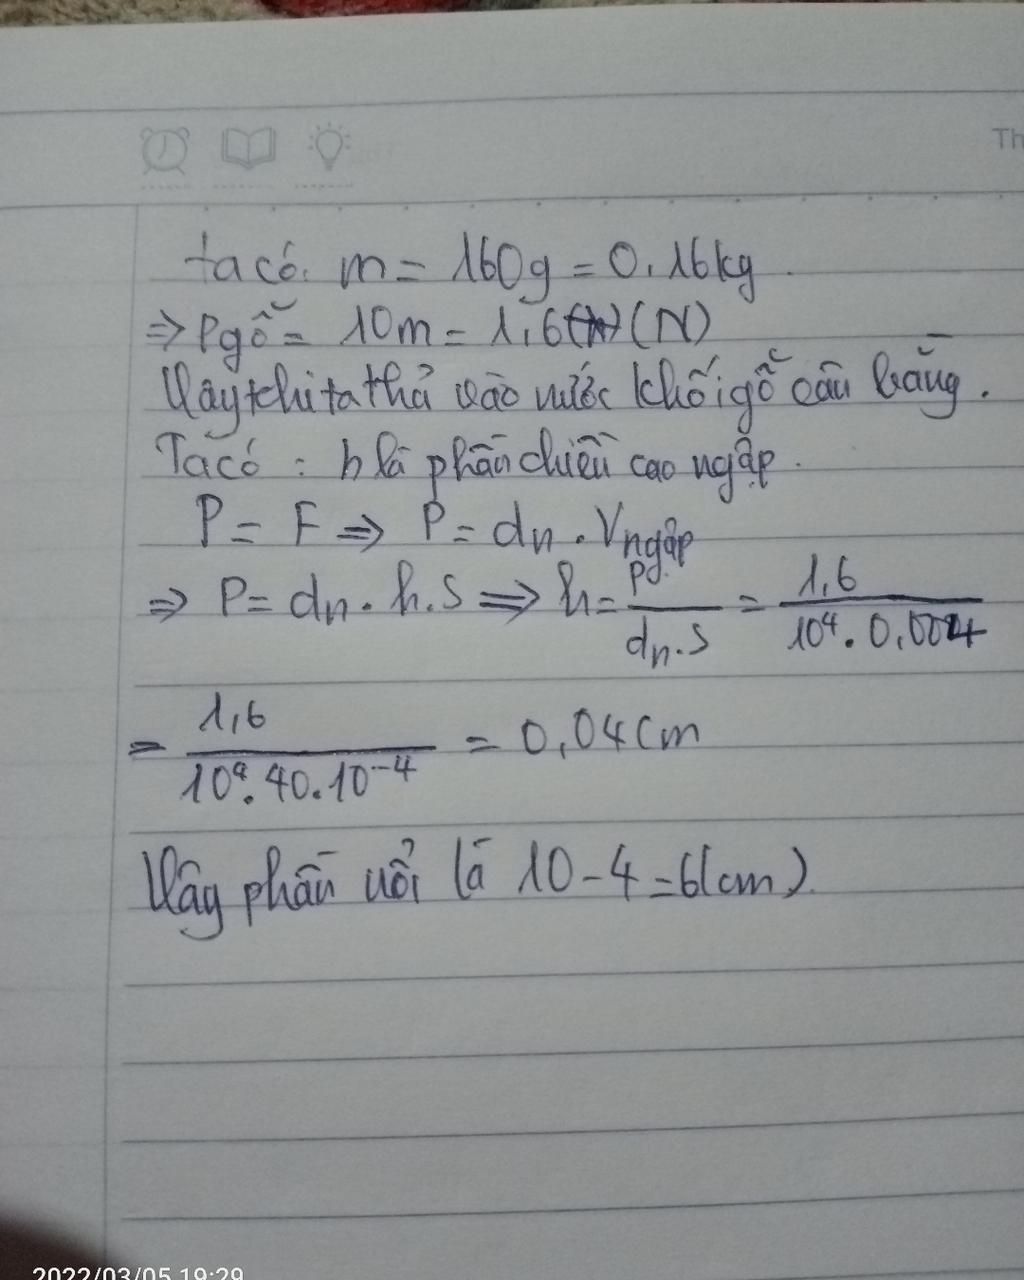 Th
ta có: m = 160g = 0,16kg.
⇒ Pgỗ = 10m = 1,6 (N)
Vậy khi ta thả vào nước khối gỗ cân bằng.
Ta có: h là phần chiều cao ngập.
P = F ⇒ P = dn . Vngập
⇒ P = dn . h . S ⇒ h = P / dn.S = 1,6 / 10⁴ . 0,004
= 1,6 / 10⁴ . 40 . 10⁻⁴ = 0,04cm
Vậy phần nổi là 10 - 4 = 6(cm)
2022/03/05 19:29